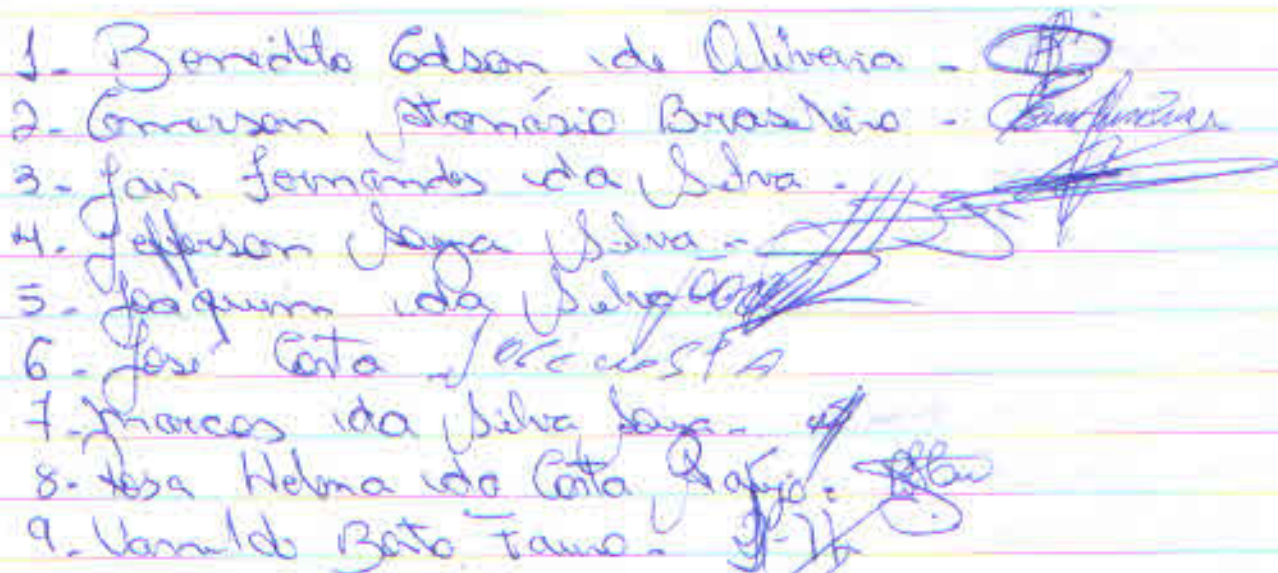 1- Benedito Edson de Oliveira -
2- Emerson Atanásio Brasileiro -
3- Jair Fernandes da Silva -
4- Jefferson Silva -
5- Joaquim da Silva
6- José Costa - José costA
7- Marcos da Silva
8- Rosa Helena da Costa Araújo -
9- Bato -